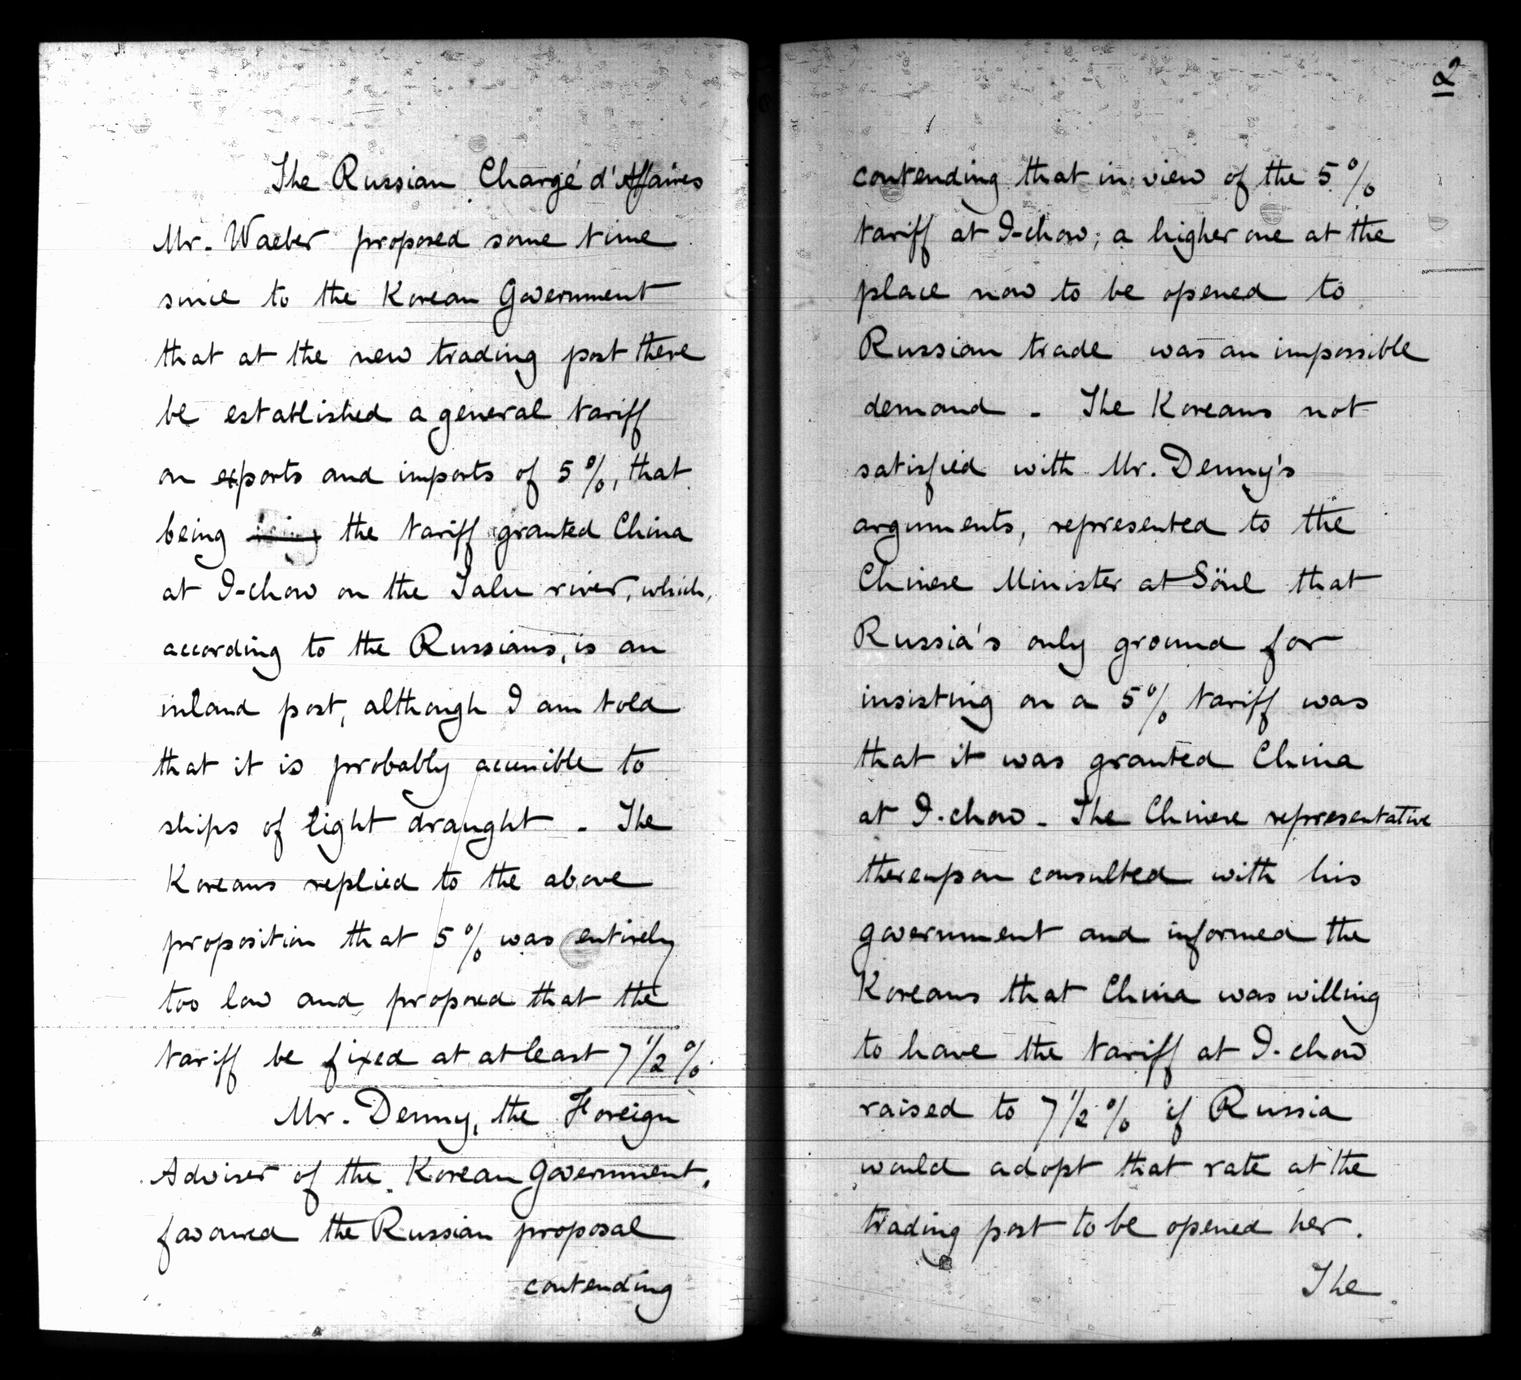 The Russian Chargé d'Affaires
Mr. Waeber proposed some time
since to the Korean Government
that at the new trading post there
be established a general tariff
on exports and imports of 5%, that
being being the tariff granted China
at I-chow on the Yalu river, which,
according to the Russians, is an
inland post, although I am told
that it is probably accessible to
ships of light draught. The
Koreans replied to the above
proposition that 5% was entirely
too low and proposed that the
tariff be fixed at at least 7 1/2 %.
Mr. Denny, the Foreign
Adviser of the Korean Government,
favoured the Russian proposal
contending
2
contending that in view of the 5%
tariff at I-chow; a higher one at the
place now to be opened to
Russian trade was an impossible
demand. The Koreans not
satisfied with Mr. Denny's
arguments, represented to the
Chinese Minister at Söul that
Russia's only ground for
insisting on a 5% tariff was
that it was granted China
at I-chow. The Chinese representative
thereupon consulted with his
government and informed the
Koreans that China was willing
to have the tariff at I-chow
raised to 7 1/2 % if Russia
would adopt that rate at the
trading post to be opened her.
The